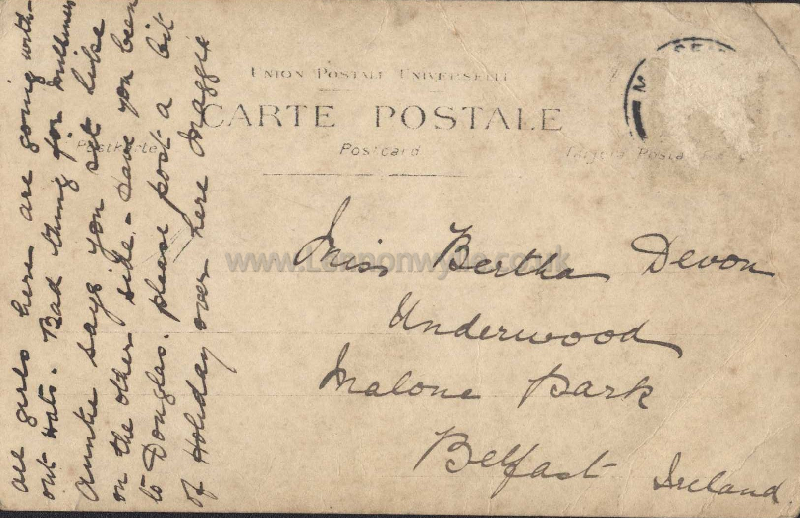 UNION POSTALE UNIVERSELLE
CARTE POSTALE
Postkarte Postcard
Miss Bertha Devon
Underwood
Malone Park
Belfast Ireland.
all girls here are going with-
out Hats. Bad thing for milliners
Auntie says you set like
on the other side - Have you been
to Douglas. please post a bit
of Holiday over here Maggie
www.Lennonwylie.co.uk